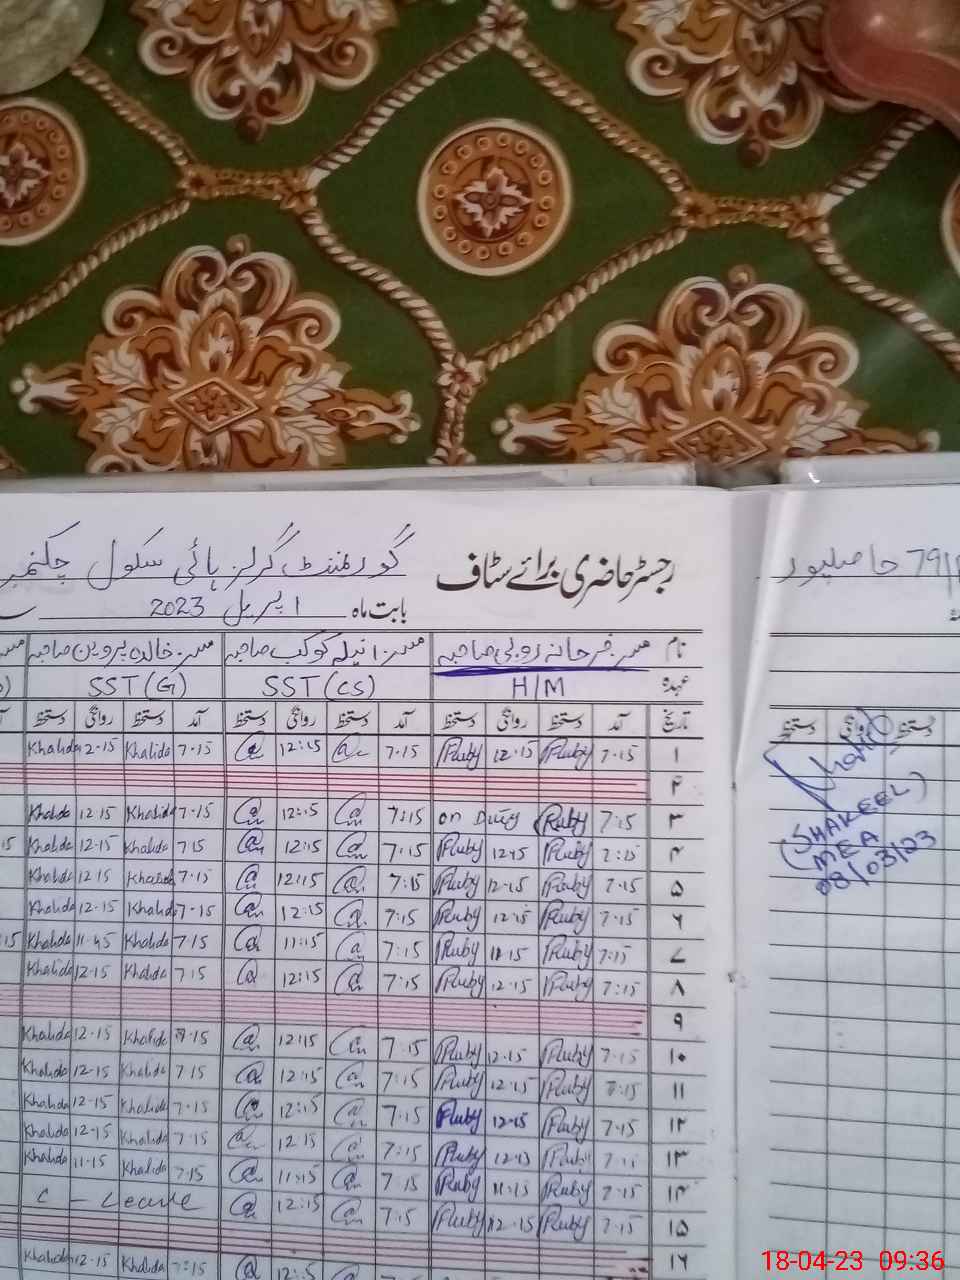 رجسٹر حاضری برائے سٹاف گورنمنٹ گرلز ہائی سکول چکنمبر 79/ حاصلپور
بابت ماہ اپریل 2023
نام مسز فرحانہ روبی صاحبہ مسز انیلہ کوکب صاحبہ مسز خالدہ پروین صاحبہ
عہدہ H/M SST (CS) SST (G)
تاریخ آمد دستخط روانگی دستخط آمد دستخط روانگی دستخط آمد دستخط روانگی دستخط
۱ 7-15 Ruby 12-15 Ruby 7-15 12:15 7-15 Khalida 12-15 Khalida
۲
۳ 7:15 Ruby on Duty 7:15 12:15 7-15 Khalida 12 15 Khalida
۴ 7:15 Ruby 12-15 Ruby 7:15 12:15 7 15 Khalida 12-15 Khalida
۵ 7-15 Ruby 12-15 Ruby 7:15 12:15 7-15 Khalida 12 15 Khalida
۶ 7-15 Ruby 12-15 Ruby 7:15 12:15 7-15 Khalida 12-15 Khalida
۷ 7:15 Ruby 11-15 Ruby 7:15 11:15 7-15 Khalida 11-45 Khalida
۸ 7:15 Ruby 12-15 Ruby 7:15 12:15 7:15 Khalida 12-15 Khalida
۹
۱۰ 7-15 Ruby 12-15 Ruby 7:15 12:15 7-15 Khalida 12-15 Khalida
۱۱ 7:15 Ruby 12-15 Ruby 7:15 12:15 7 15 Khalida 12-15 Khalida
۱۲ 7-15 Ruby 12-15 Ruby 7:15 12:15 7-15 Khalida 12-15 Khalida
۱۳ Ruby Ruby 7:15 12:15 7-15 Khalida 12-15 Khalida
۱۴ 7-15 Ruby 11-15 Ruby 7:15 11:15 7-15 Khalida 11-15 Khalida
۱۵ 7-15 Ruby 12-15 Ruby 7:15 12:15 C - Leave
۱۶ 7:15 Khalida 12-15 Khalida
دستخط روانگی دستخط
(SHAKEEL)
MEA
08/03/23
18-04-23 09:36